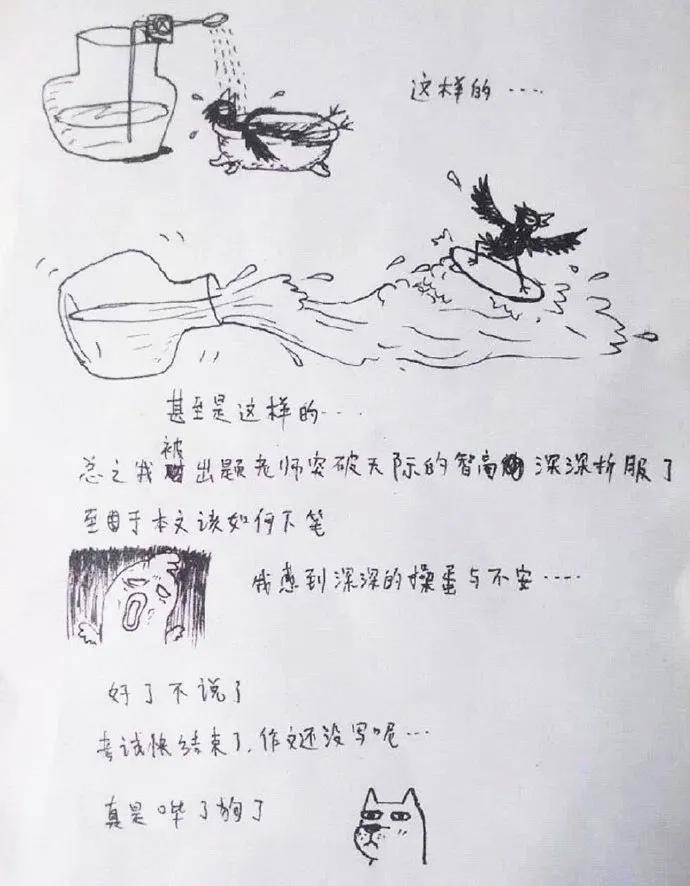 这样的····
甚至是这样的····
总之我被出题老师突破天际的智商深深折服了
至于本文该如何下笔
我感到深深的操蛋与不安·····
好了不说了
考试快结束了,作文还没写呢···
真是哔了狗了